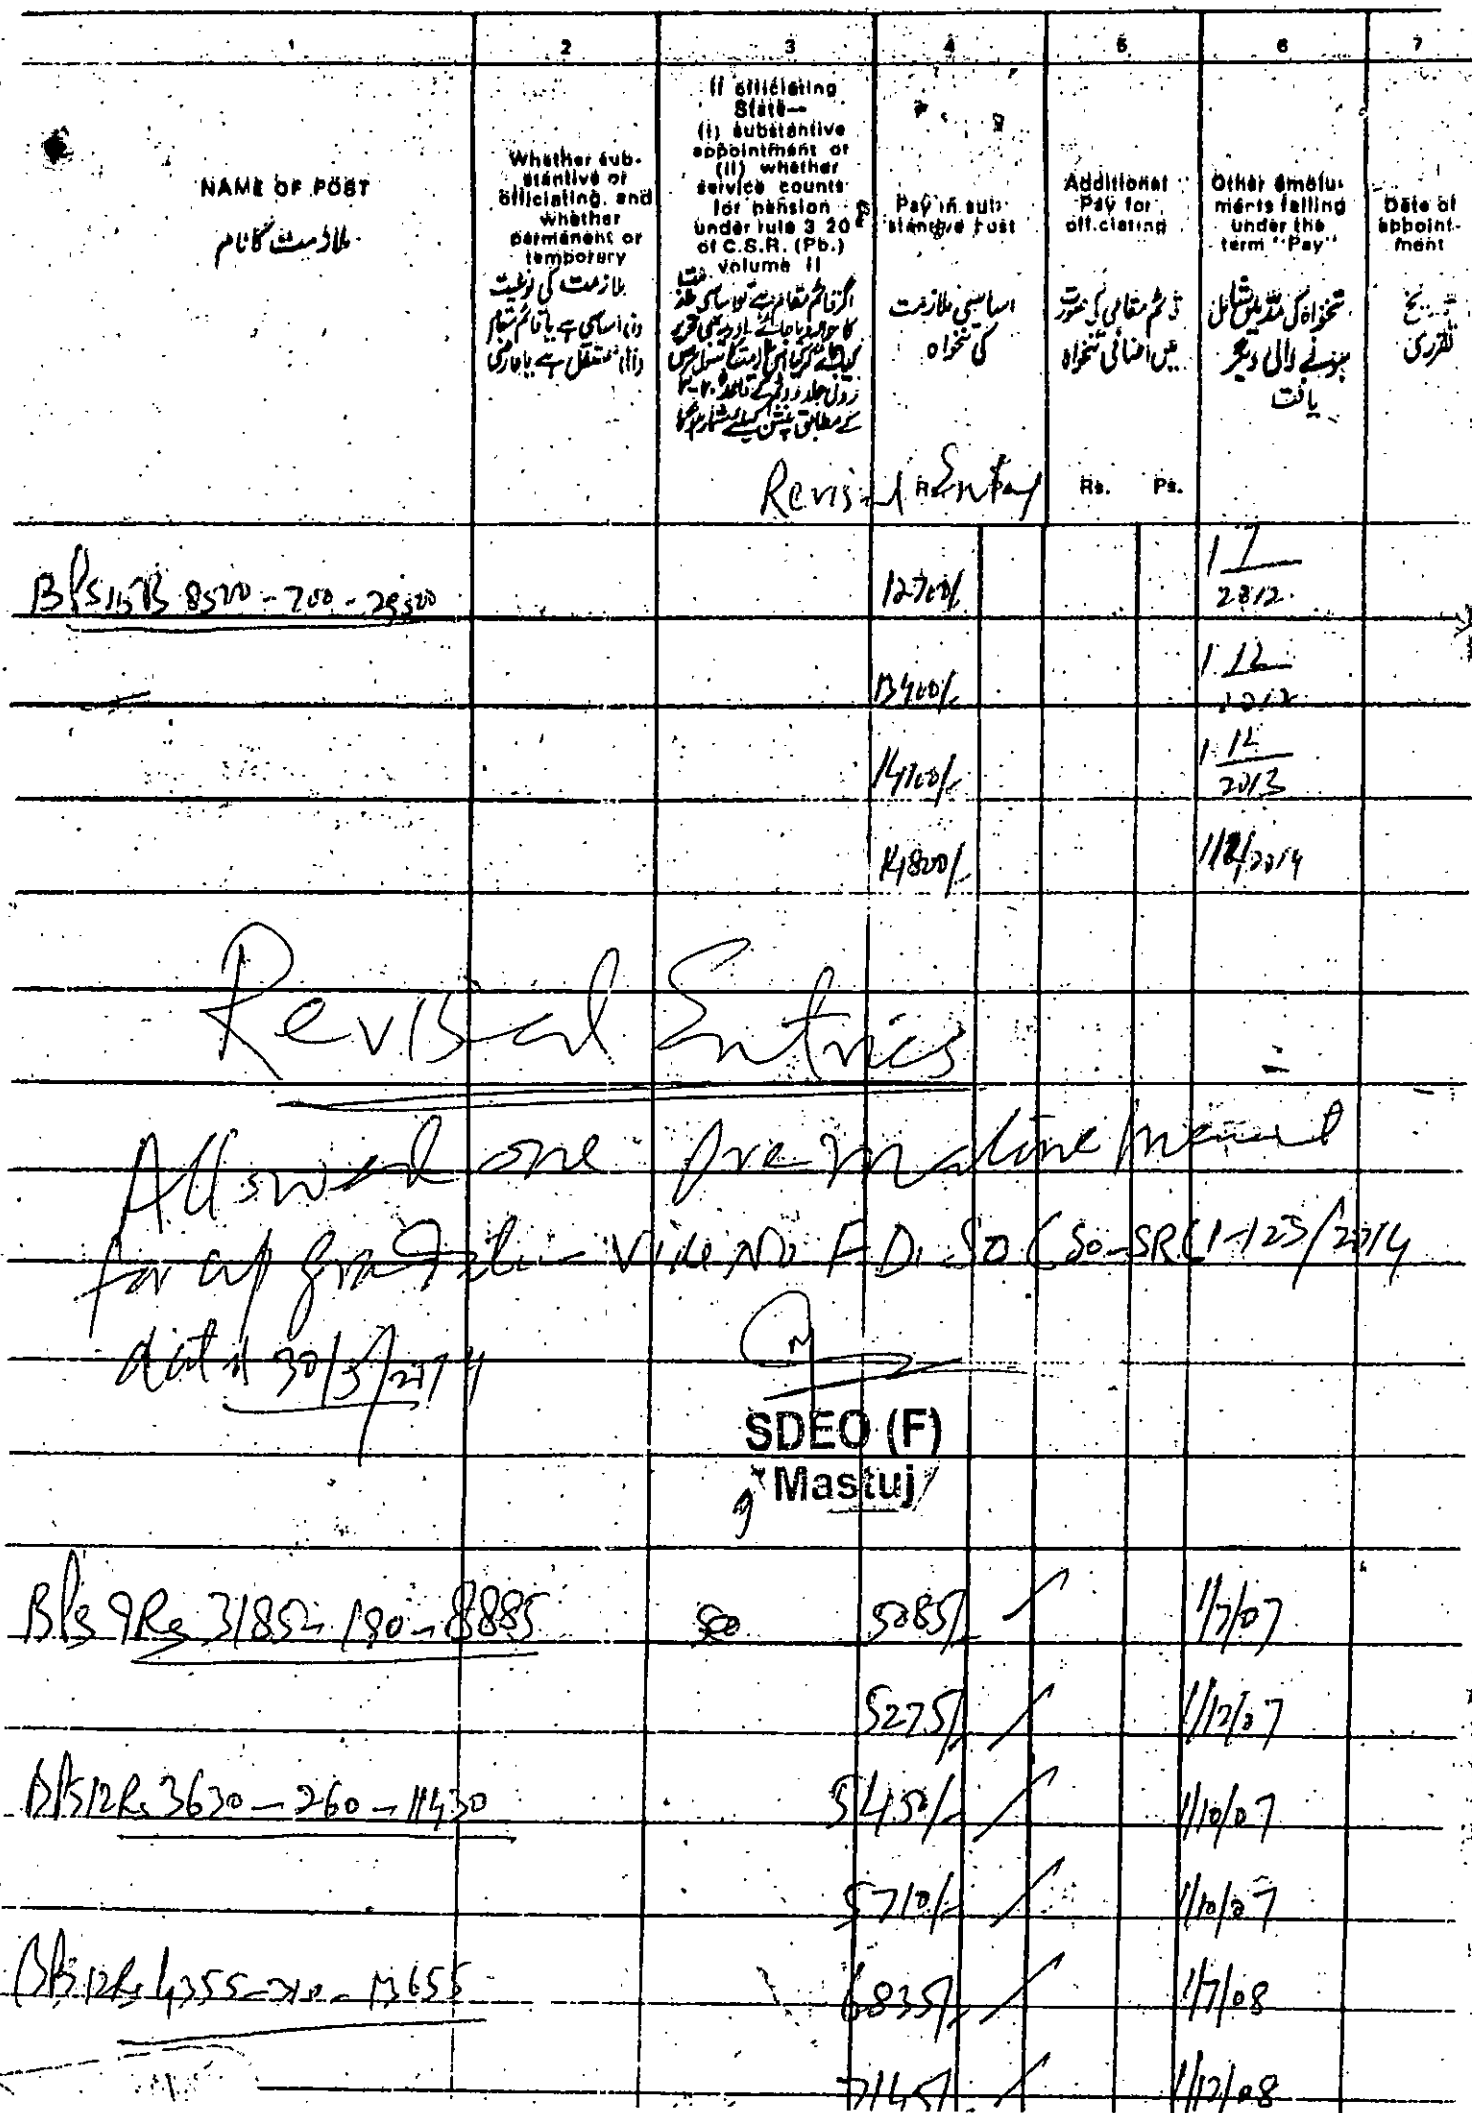 1 2 3 4 5 6 7
NAME OF POST
ملازمت کا نام
Whether sub-
stantive or
officiating, and
whether
permanent or
temporary
ملازمت کی نوعیت
If officiating
State—
(i) substantive
appointment or
(ii) whether
service counts
for pension
under rule 3 20
of C.S.R. (Pb.)
volume II
Pay in sub-
stantive Post
اساسی ملازمت
کی تنخواہ
Additional
Pay for
officiating
قائم مقامی کی صورت
میں اضافی تنخواہ
Other emolu-
ments falling
under the
term "Pay"
تنخواہ کی مد میں شامل
ہونے والی دیگر
یافت
Date of
appoint-
ment
تاریخ
تقرری
Revised Entry Rs. Ps.
BPS 15 Rs 8500-700-29500 12700/- 1 7 2012
13400/- 1 12 2012
14100/- 1 12 2013
14800/- 1/12/2014
Revised Entries
Allowed one pre mature
for up gradation Vide No F D. SO (SO-SR(1-123/2014
dated 30/5/2014
SDEO (F)
Mastuj
BPS 9 Rs 3185-190-8885 5085/- 1/7/07
5275/- 1/12/07
BPS 12 Rs 3630-260-11430 5450/- 1/10/07
5710/- 1/10/07
BPS 12 Rs 4355-310-13655 6835/- 1/7/08
7145/- 1/12/08